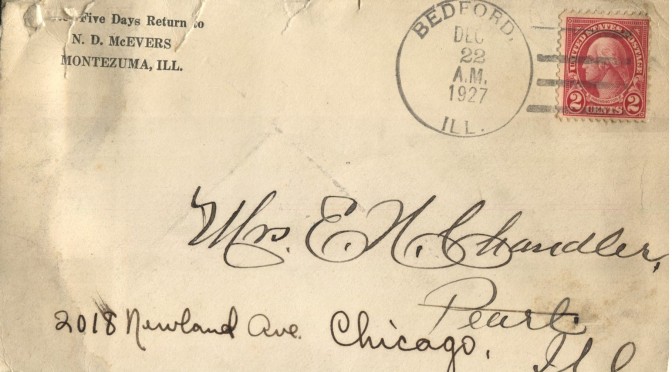 Five Days Return to
N. D. McEVERS
MONTEZUMA, ILL.
BEDFORD,
DEC
22
A.M.
1927
ILL.
UNITED STATES POSTAGE
2 CENTS 2
Mrs. E. N. Chandler,
Pearl
2018 Newland Ave. Chicago,
Ill